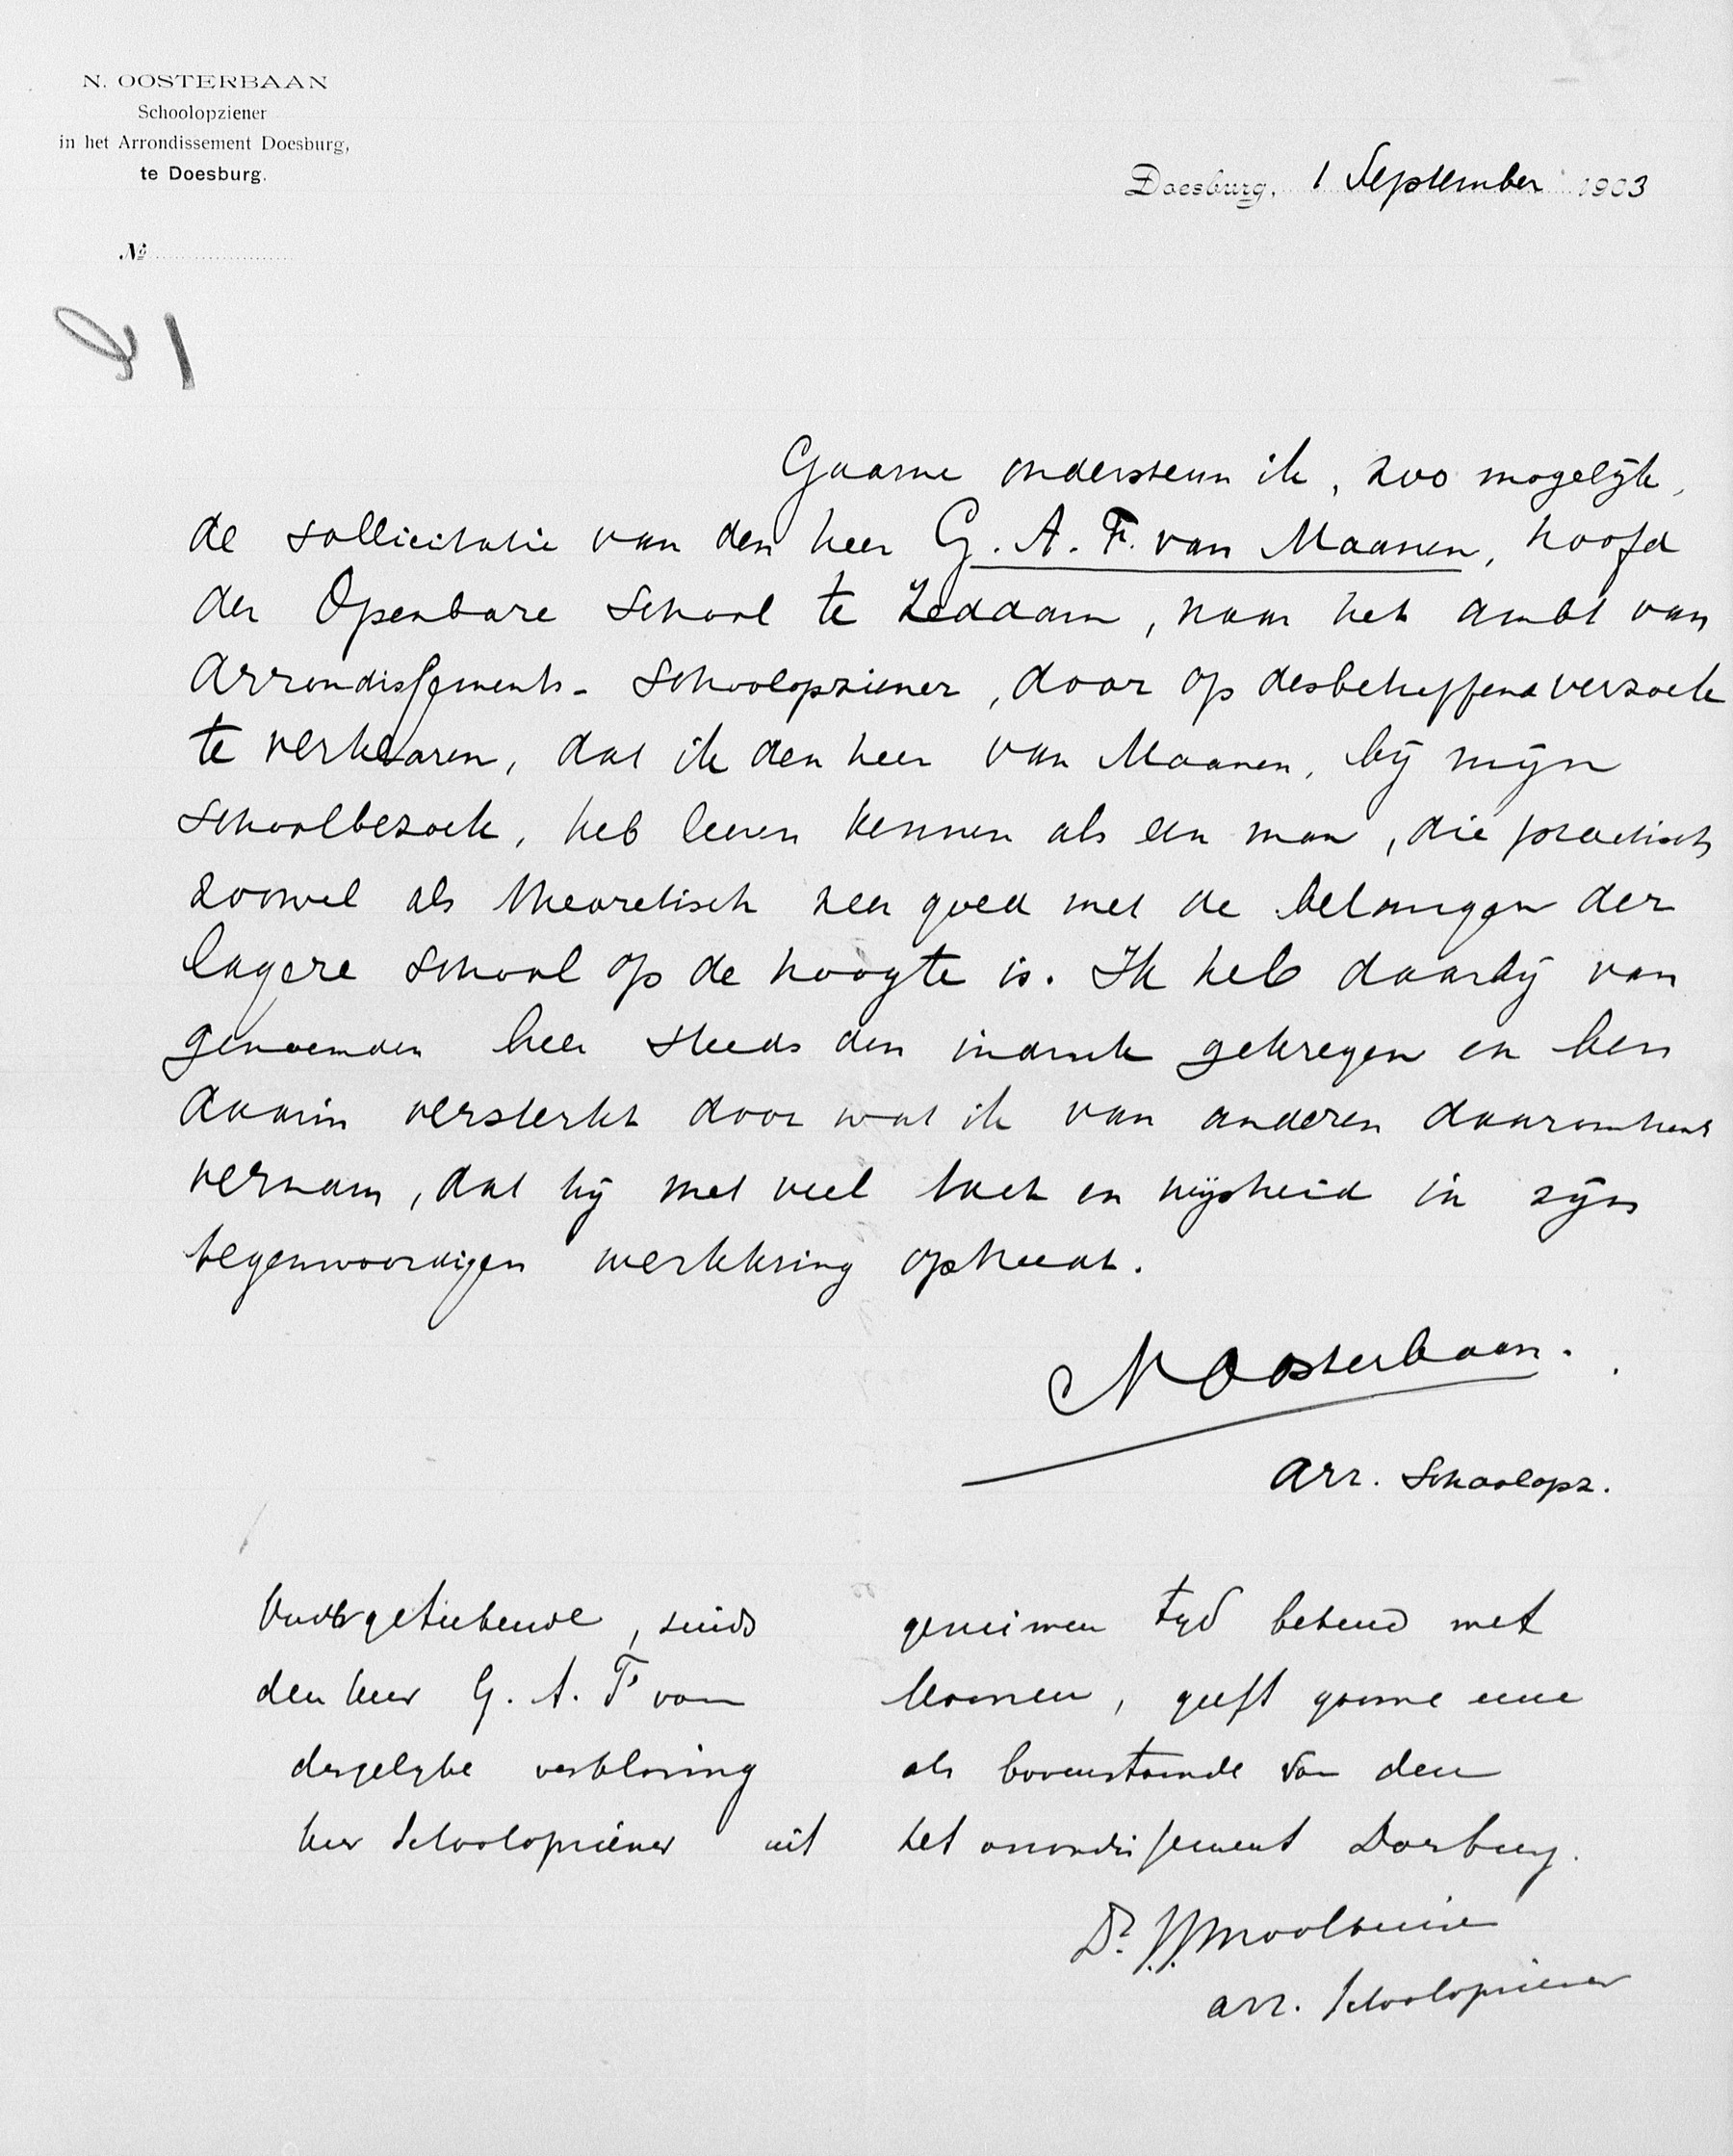 N. OOSTERBAAN
Schoolopziener
in het Arrondissement Doesburg,
te Doesburg.
Doesburg, 1 September 1903
No
Gaarne ondersteun ik, zoo mogelijk,
de sollicitatie van den heer G. A. F. van Maanen, hoofd
der Openbare School te Zeddam, naar het ambt van
Arrondissements-Schoolopziener, door op desbetreffend verzoek
te verklaren, dat ik den heer van Maanen, bij mijn
schoolbezoek, heb leeren kennen als een man, die practisch
zoowel als theoretisch zeer goed met de belangen der
lagere school op de hoogte is. Ik heb daarbij van
genoemden heer steeds den indruk gekregen en ben
daarin versterkt door wat ik van anderen daaromtrent
vernam, dat hij met veel takt en wijsheid in zijn
tegenwoordigen werkkring optreedt.
N Oosterbaan.
Arr. Schoolopz.
Ondergeteekende, sinds geruimen tijd bekend met
den heer G. A. F van Maanen, geeft gaarne eene
dergelyke verklaring als bovenstaande van den
heer Schoolopziener uit het arrondissement Doesburg.
Dr. J.J.
arr. Schoolopziener